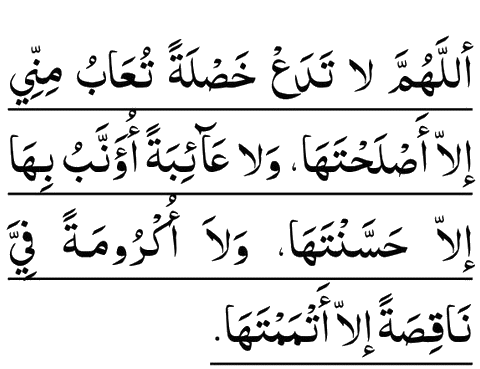 أللَّهُمَّ لا تَدَعْ خَصْلَةً تُعَابُ مِنِّي
إلاّ أَصْلَحْتَهَا، وَلا عَآئِبَةً أُوَنَّبُ بِهَا
إلاّ حَسَّنْتَهَا، وَلاَ أُكْرُومَةً فِيَّ
نَاقِصَةً إلاّ أَتْمَمْتَهَا.